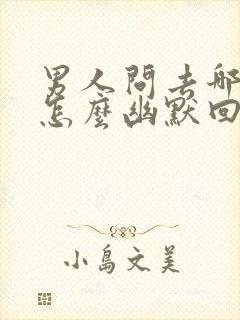 男人問去哪
怎麼幽默回
小島文美